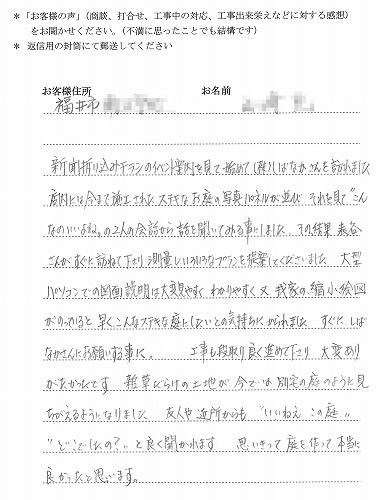 ＊「お客様の声」（商談、打合せ、工事中の対応、工事出来栄えなどに対する感想）
をお聞かせください。（不満に思ったことでも結構です）
＊ 返信用の封筒にて郵送してください
お客様住所　お名前
福井市
新聞折り込みチラシのイベント案内を見て始めて（株）しばなかさんを訪れました
店内には今まで施工されたステキなお庭の写真パネルが並び それを見て"こん
なのいいよね"の2人の会話から話を聞いてみる事にしました その結果 森谷
さんがすぐに訪ねて下さり 測量し いろいろなプランを提案してくださいました 大型
パソコンでの図面説明は大変見やすく わかりやすく 又 我家の縮小絵図
がのっかると 早くこんなステキな庭にしたいとの気持ちにかられました すぐに しば
なかさんにお願いする事に。 工事も段取り良く進めて下さり 大変あり
がたかったです 雑草だらけの土地が 今では 別宅の庭のように見
ちがえるようになりました 友人や近所からも "いいねえ この庭〟
"どこでしたの？〟と良く聞かれます 思いきって庭を作って本当に
良かったと思います。